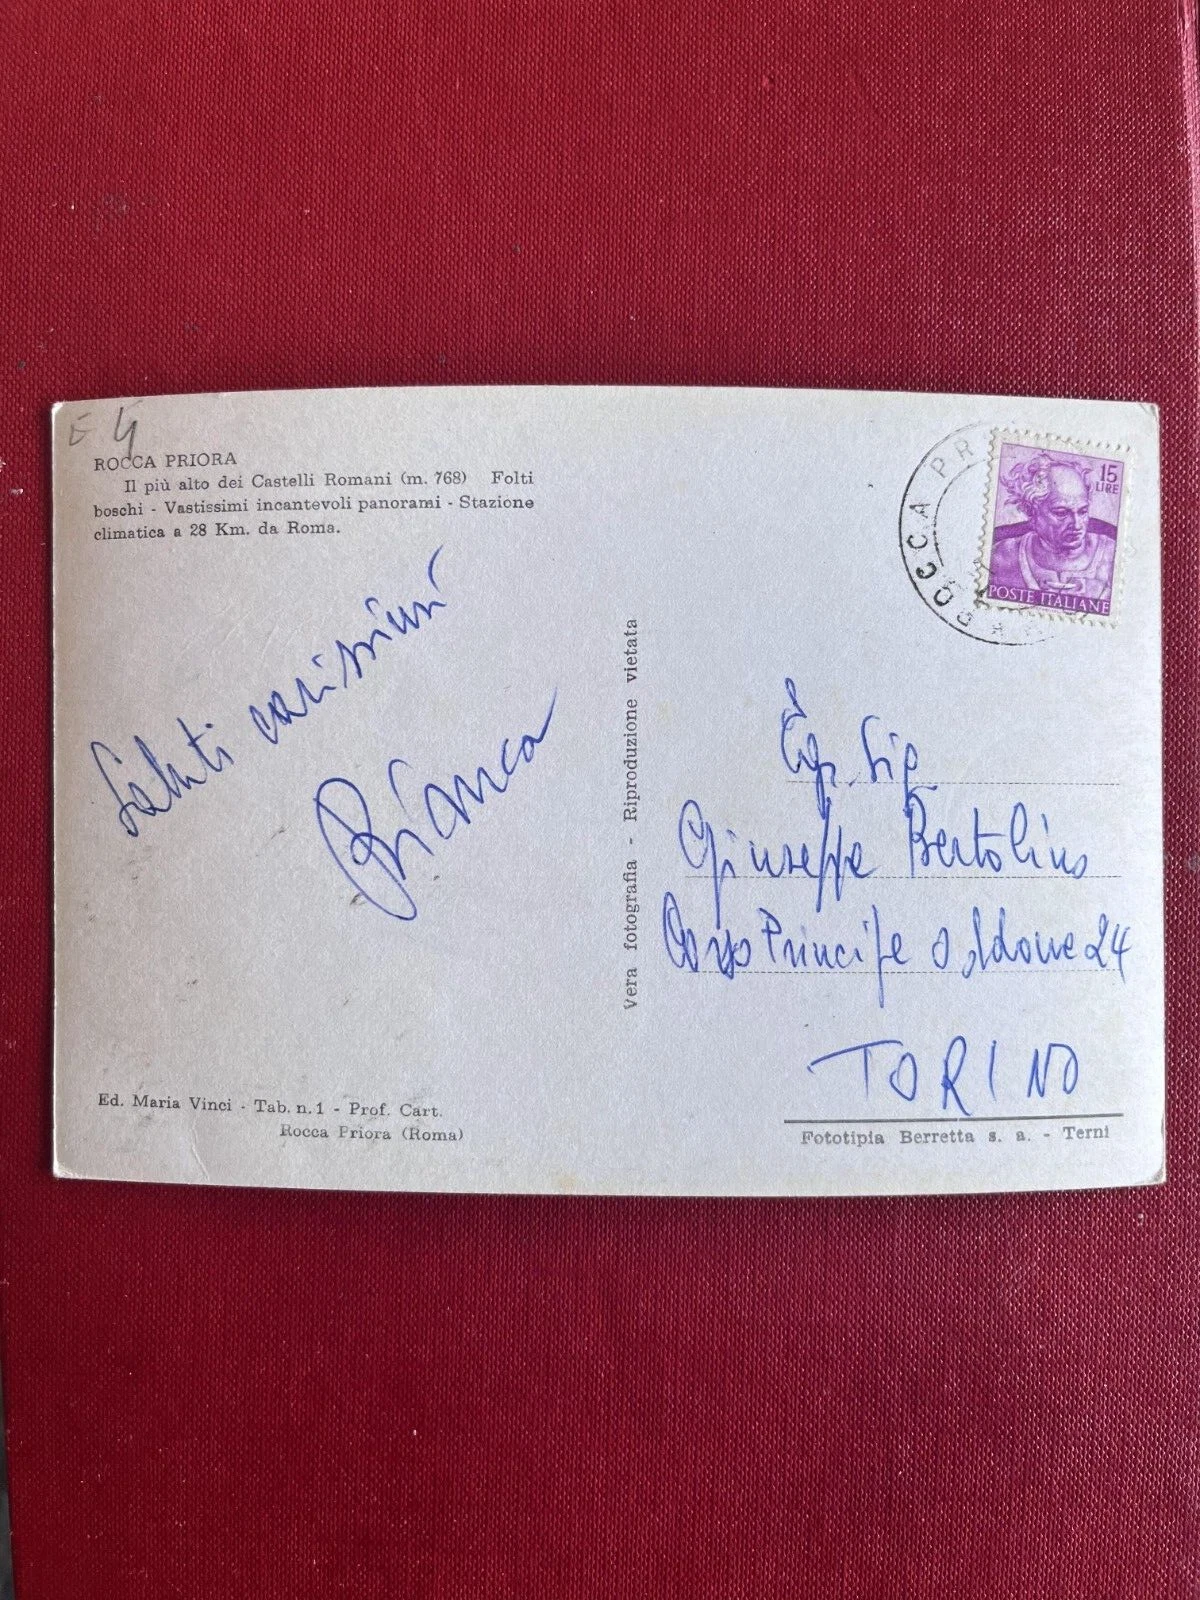 E 4
ROCCA PRIORA
Il più alto dei Castelli Romani (m. 768) Folti
boschi - Vastissimi incantevoli panorami - Stazione
climatica a 28 Km. da Roma.
Saluti carissimi
Bianca
Ed. Maria Vinci - Tab. n. 1 - Prof. Cart.
Rocca Priora (Roma)
Vera fotografia - Riproduzione vietata
ROCCA PR
15
LIRE
POSTE ITALIANE
Egr. Sig
Giuseppe Bertolino
Corso Principe Oddone 24
TORINO
Fototipia Berretta s. a. - Terni